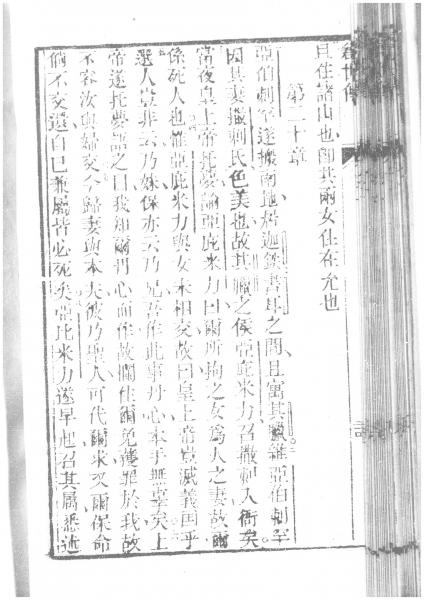 創世傳
且住諸山也卽其爾女住在允也
第二十章
亞伯剌罕遂搬南地於迦鉄書耳之間且寓其臘雖亞伯剌罕
因其妻撒剌氏色美也故其臘之侯亞庇米力召撒剌入衙矣
當夜皇上帝托夢諭亞庇米力曰爾所拘之女爲人之妻故爾
係死人也雖亞庇米力與女未相交故曰皇上帝豈滅義国乎
選人豈非云乃妹係亦云乃兄吾作此事丹心本手無辜矣上
帝遂托夢語之曰我知爾丹心而作故攔住爾免獲罪於我故
不容汝與婦交今歸妻與本夫彼乃聖人可代爾求又爾保命
倘不交還自己兼屬皆必死矣亞庇米力遂早起召其屬悉述